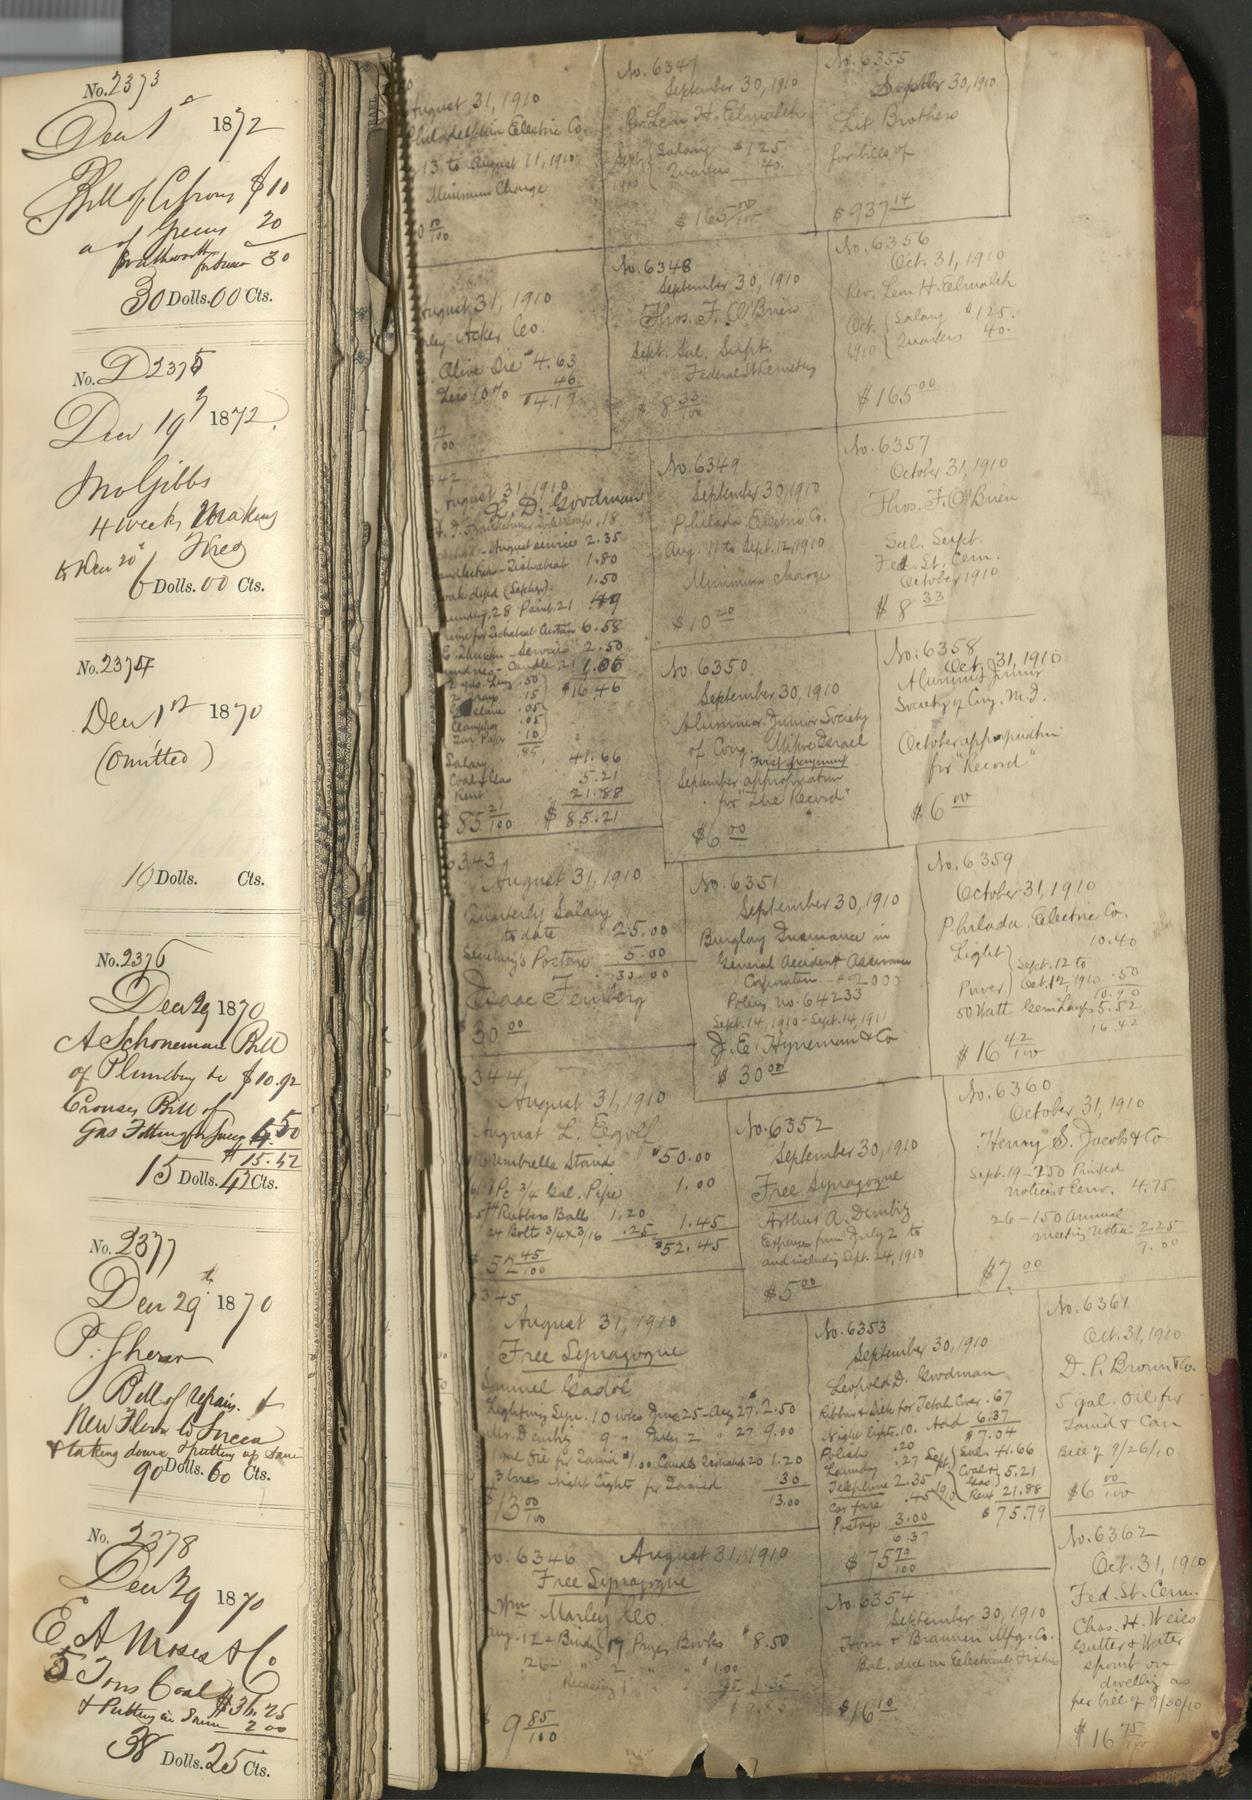 No. 2373
Dec 1st 1872
Bill of Citrons $10
" of Greens 20
for Succa 30
30 Dolls. 00 Cts.
No. 2375
Dec 19 1872
Jno Gibbs
4 weeks Making
to Dec 20" Fires
6 Dolls. 00 Cts.
No. 2374
Dec 1st 1870
(Omitted)
10 Dolls. Cts.
No. 2376
Dec 29 1870
A Schoneman Bill
of Plumbing &c $10.92
Crouses Bill of
Gas Fitting for Succa 4.50
$15.42
15 Dolls. 42 Cts.
No. 2377
Dec 29th 1870
P. Sheran
Bill of repairs &
New Floor to Succa
& taking down & putting up same
90 Dolls. 60 Cts.
No. 2378
Dec 29 1870
E A Moses & Co
5 Tons Coal $36.25
& Putting in 2 00
38 Dolls. 25 Cts.
August 31, 1910
Philadelphia Electric Co.
13 to August 11, 1910
Minimum Charge
August 31, 1910
Acker Co.
Olive Oil $4.63
Less 10% 46
$4.17
17/100
342
August 31, 1910
L. D. Goodman
.18
August service 2.35
1.80
1.50
28 Paint .21 49
6.58
Service 2.50
Candle 1.06
$16.46
.50
.15
.05
Camphor .05
Tar Paper .10
.85
Salary 41.66
Coal & Gas 5.21
Rent 21.88
$85 21/100 $85.21
6343
August 31, 1910
Quarterly Salary
to date 25.00
Secretary's Postage 5.00
30.00
Isaac Feinberg
$30 00
344
August 31, 1910
August L.
Umbrella Stand $50.00
1 Pc 3/4 Gal. Pipe 1.00
Rubber Ball 1.20
24 Bolts 3/4 x 3/16 .25 1.45
$52.45
$52 45/100
345
August 31, 1910
Free Synagogue
Samuel Gadol
Lighting Syn. 10 wks June 25 - Aug 27 $2.50
Mrs. Dembitz 9 " July 2 " 27 9.00
Oil for Tamid $1.00 Candles 20 1.20
3 boxes Night Lights for Tamid 30
13.00
$13 00/100
No. 6346 August 31, 1910
Free Synagogue
Wm Marley Co
Aug. 12 - Binding 17 Prayer Books $8.50
26 - 2 " " $1.00
1.35
$9.85
$9 85/100
No. 6347
September 30, 1910
Rev. Leon H. Elmaleh
Sept. 1910 { Salary $125.
Quarters 40.
$165 00/100
No. 6348
September 30, 1910
Thos. F. O'Brien
Sept. Sal. Supt.
Federal St Cemetery
$8 33/100
No. 6349
September 30, 1910
Philada Electric Co.
Aug. 11 to Sept. 12, 1910
Minimum charge
$10 20
No. 6350
September 30, 1910
Alumni Junior Society
of Cong. Mikve Israel
First payment
September appropriation
for "The Record"
$6 00
No. 6351
September 30, 1910
Burglary Insurance in
General Accident Assurance
Corporation - $2000
Policy no. 64233
Sept. 14, 1910 - Sept. 14, 1911
J. E. Hyneman & Co
$30 00
No. 6352
September 30, 1910
Free Synagogue
Arthur A. Dembitz
Expenses from July 2 to
and including Sept. 24, 1910
$5 00
No. 6353
September 30, 1910
Leopold D. Goodman
Ribbon & Silk for Tebah Cover .67
Night Lights .10. Add 6.37
$7.04
Polish .20
Laundry .27
Sept. 1910 { Sal. 41.66
Telephone 2.35
Coal & Gas 5.21
Car fare .45
Rent 21.88
Postage 3.00
$75.79
6.37
$75 79/100
No. 6354
September 30, 1910
Horn & Brannen Mfg. Co.
Bal. due on Electrical Fixture
$16 10
No. 6355
September 30, 1910
Lit Brothers
for bills of
$937 14
No. 6356
Oct. 31, 1910
Rev. Leon H. Elmaleh
Oct. 1910 { Salary $125.
Quarters 40.
$165 00
No. 6357
October 31, 1910
Thos. F. O'Brien
Sal. Supt.
Fed. St. Cem.
October 1910
$8 33
No. 6358
Oct. 31, 1910
Alumni Junior
Society of Cong. M. I.
October appropriation
for "Record"
$6 00
No. 6359
October 31, 1910
Philada. Electric Co.
10.40
Light } Sept. 12 to
Power } Oct. 12, 1910 .50
10.90
50 Watt Gem Lamps 5.52
16.42
$16 42/100
No. 6360
October 31, 1910
Henry S. Jacobs & Co
Sept. 19 - 250 Printed
notices & Env. 4.75
26 - 150 Annual
meeting notices 2.25
7.00
$7. 00
No. 6361
Oct. 31, 1910
D. P. Brown & Co.
5 gal. Oil for
Tamid & Can
Bill of 9/26/10
$6 00/100
No. 6362
Oct. 31, 1910
Fed. St. Cem.
Chas. H. Weiss
Gutter & Water
spout on
dwelling as
per bill of 9/30/10
$16 75/100